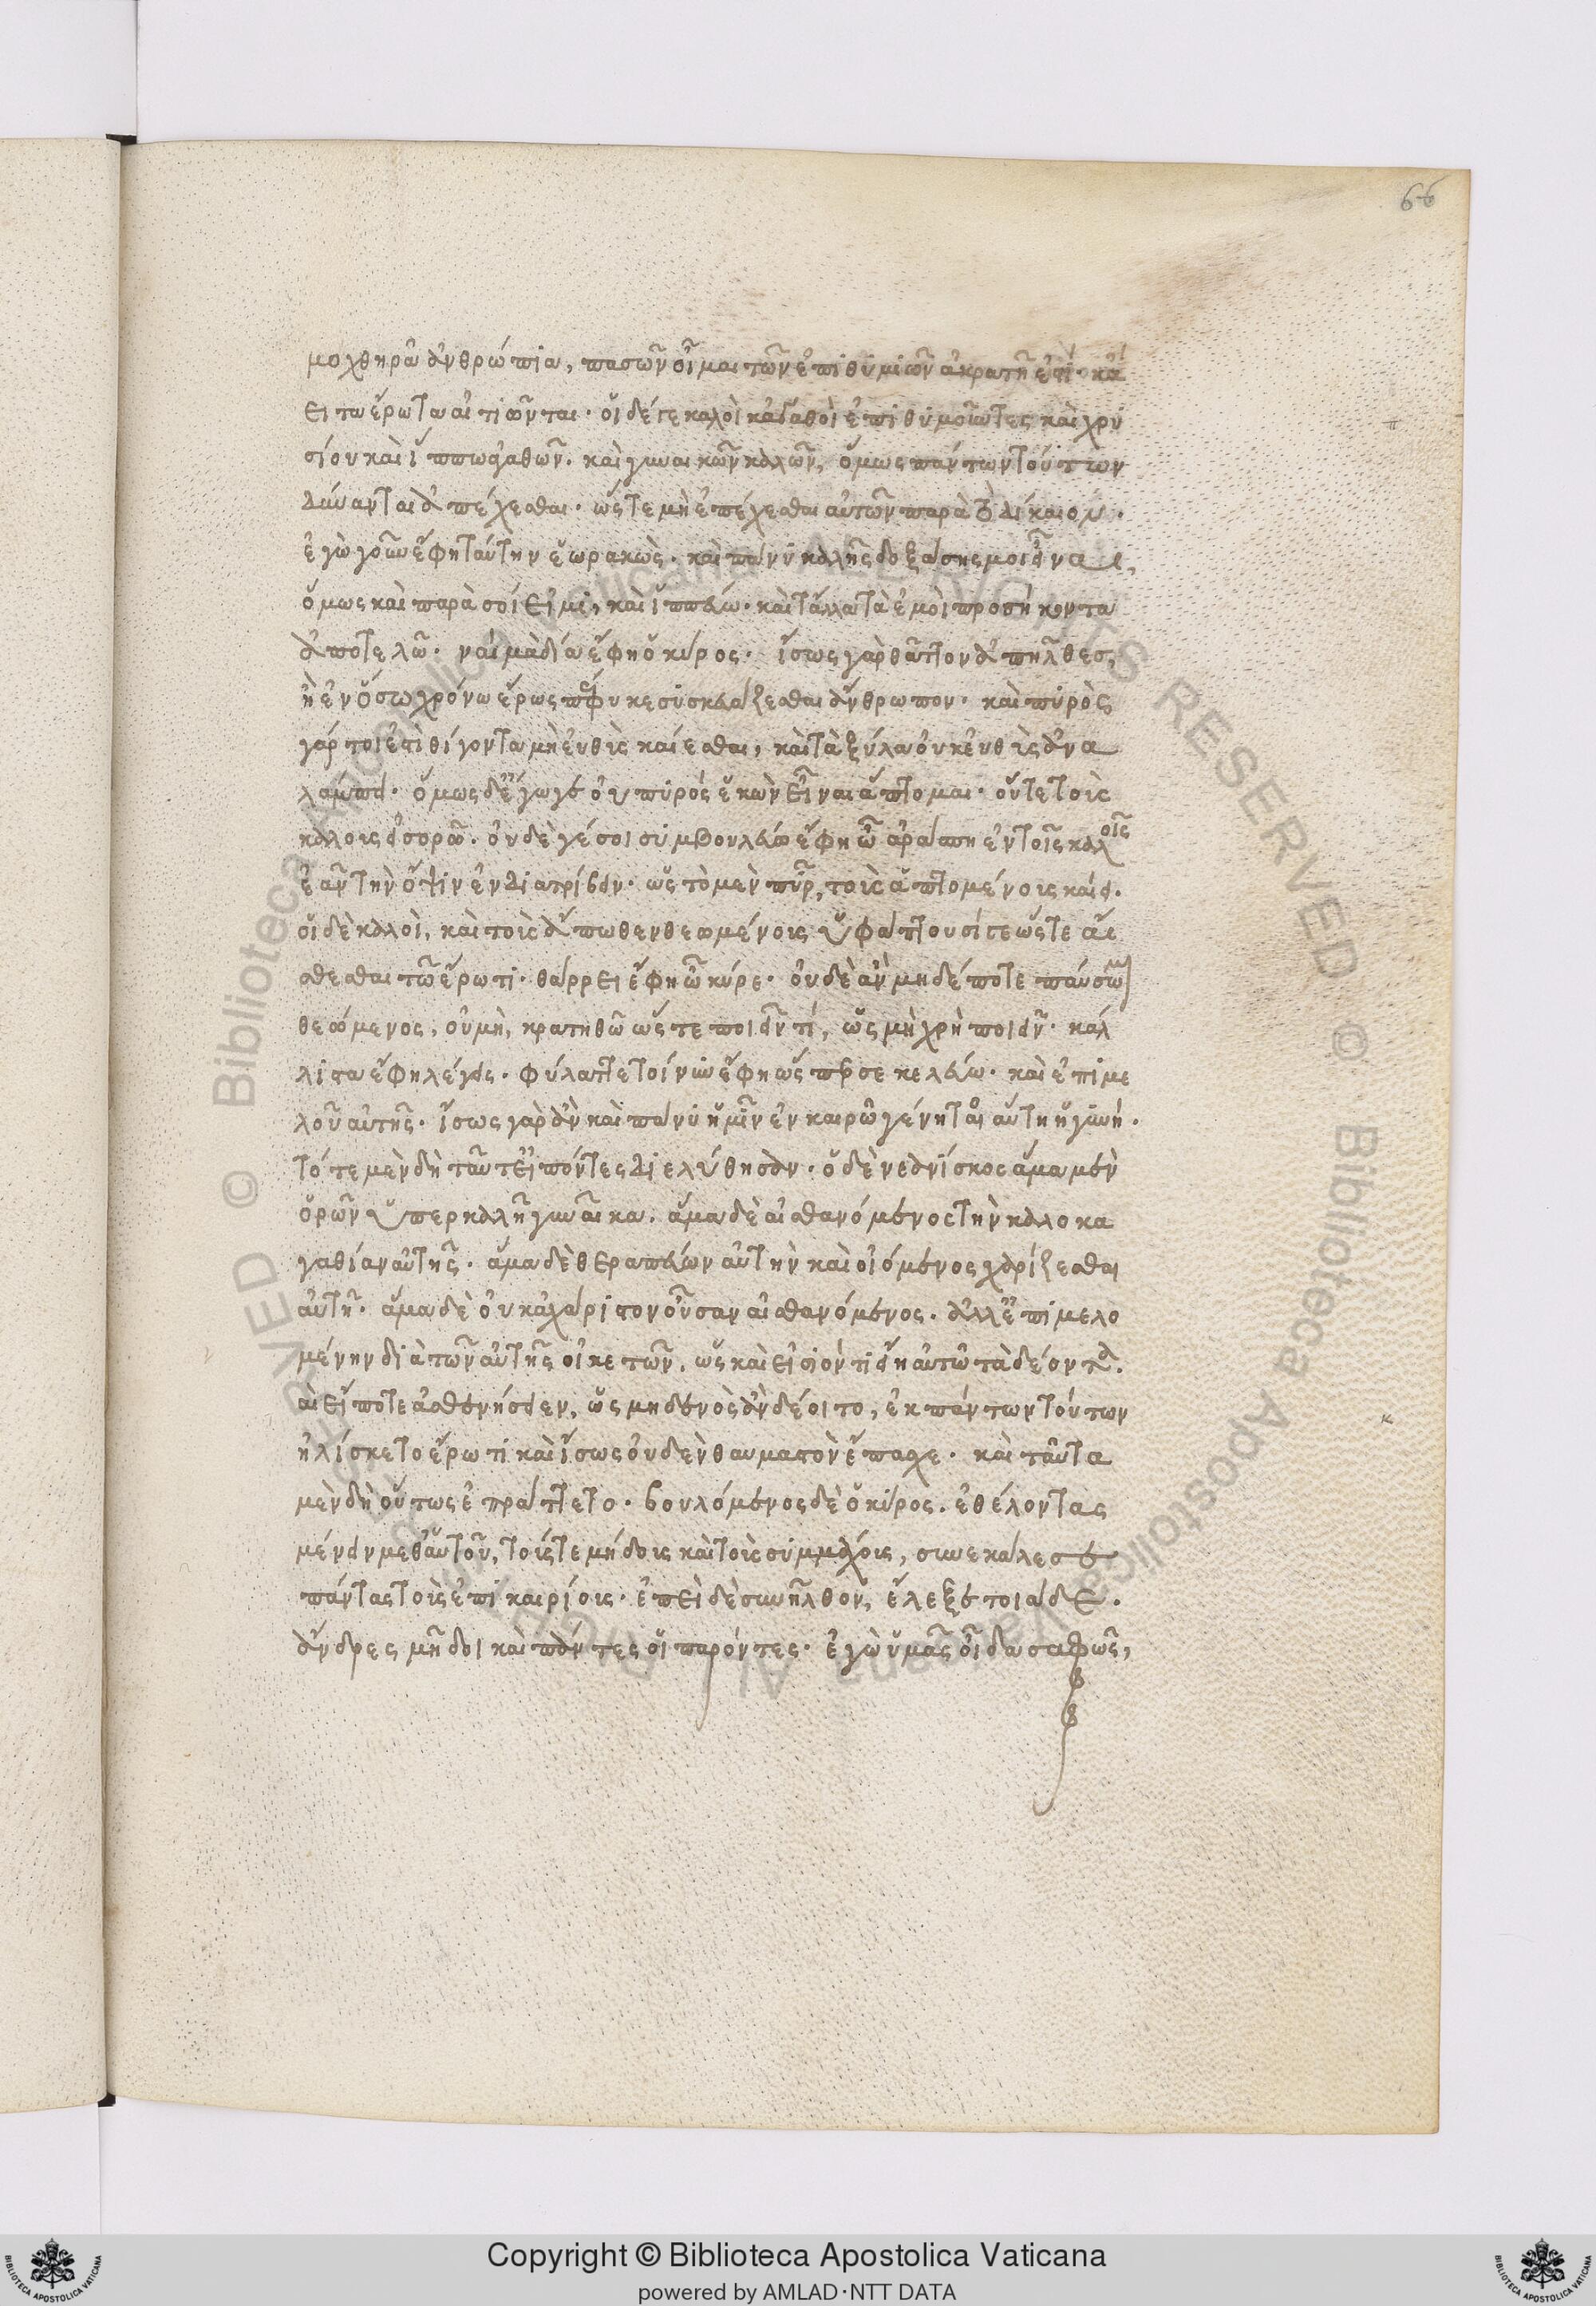 66
μοχθηρὰ ἀνθρώπια, πασῶν οἶμαι τῶν ἐπιθυμιῶν ἀκρατῆ ἐστί· κἄ
ειτα ἔρωτα αἰτιῶνται· οἱ δέ γε καλοὶ κἀγαθοὶ ἐπιθυμοῦντες καὶ χρυ
σίου καὶ ἵππων ἀγαθῶν. καὶ γυναικῶν καλῶν, ὅμως πάντων τούτων
δύνανται ἀπέχεσθαι· ὥστε μὴ ἐπέχεσθαι αὐτῶν παρὰ τὸ δίκαιον.
ἐγὼ γοῦν ἔφη ταύτην ἑωρακὼς. καὶ πάνυ καλῆς δοξάσης μοι εἶναι,
ὅμως καὶ παρὰ σοί εἰμι, καὶ ἱππεύω. καὶ τἄλλα τὰ ἐμοὶ προσήκοντα
ἀποτελῶ. ναὶ μὰ δία ἔφη ὁ κῦρος. ἴσως γὰρ θᾶττον ἀπῆλθες,
ἢ ἐν ὅσω χρόνω ἔρως πέφυκε συσκευάζεσθαι ἄνθρωπον. καὶ πυρὸς
γάρ τοι ἐστὶ θίγοντα μὴ εὐθὺς καίεσθαι, καὶ τὰ ξύλα οὐκ εὐθὺς ἀνα
λάμπει. ὅμως δὲ ἔγωγε οὐ πυρός ἑκὼν εἶναι ἅπτομαι. οὔτε τοὺς
καλοὺς εἰσορῶ. οὐδὲ γέ σοι συμβουλεύω ἔφη ὦ ἀράσπη ἐν τοῖς καλοῖς
ἐᾶν τὴν ὄψιν ἐνδιατρίβειν. ὡς τὸ μὲν πῦρ, τοὺς ἁπτομένους καίει.
οἱ δὲ καλοὶ, καὶ τοὺς ἄπωθεν θεωμένοις ὑφάπτουσί γε ὥστε αἴ
σθεσθαι τῶ ἔρωτι. θάρρει ἔφη ὦ κῦρε. οὐδὲ ἂν μηδέποτε παύσωμαι
θεώμενος, οὐ μὴ, κρατηθῶ ὥστε ποιεῖν τί, ὡς μὴ χρὴ ποιεῖν. κάλ
λιστα ἔφη λέγεις. φύλαττε τοίνυν ἔφη ὥσπερ σε κελεύω. καὶ ἐπιμε
λοῦ αὐτῆς. ἴσως γὰρ ἂν καὶ πάνυ ἡμῖν ἐν καιρῶ γένηται αὕτη ἡ γυνή.
τότε μὲν δὴ ταῦτ' εἰπόντες διελύθησαν. ὁ δὲ νεανίσκος ἅμα μὲν
ὁρῶν ὑπερκαλῆ γυναῖκα. ἅμα δὲ αἰσθανόμενος τὴν καλοκα
γαθίαν αὐτῆς. ἅμα δὲ θεραπεύων αὐτὴν καὶ οἰόμενος χαρίζεσθαι
αὐτῆ. ἅμα δὲ οὐκ ἀχάριστον οὖσαν αἰσθανόμενος. ἀλλ' ἐπιμελο
μένην διὰ τῶν αὐτῆς οἰκετῶν, ὡς καὶ εἰσιόντι εἴη αὐτῶ τὰ δέοντα.
αὶ εἴ ποτε ἀσθενήσειεν, ὡς μηδενὸς ἂν δέοιτο, ἐκ πάντων τούτων
ἡλίσκετο ἔρωτι καὶ ἴσως οὐδὲν θαυμαστὸν ἔπασχε. καὶ ταῦτα
μὲν δὴ οὕτως ἐπράττετο. βουλόμενος δὲ ὁ κῦρος. ἐθέλοντας
μένειν μεθ' αὑτοῦ, τούς τε μήδους καὶ τοὺς συμμάχους, συνεκάλεσε
πάντας τοὺς ἐπικαιρίους. ἐπεὶ δὲ συνῆλθον, ἔλεξε τοιάδε.
ἄνδρες μῆδοι καὶ πάντες οἱ παρόντες. ἐγὼ ὑμᾶς οἶδα σαφῶς,
Copyright © Biblioteca Apostolica Vaticana
powered by AMLAD·NTT DATA